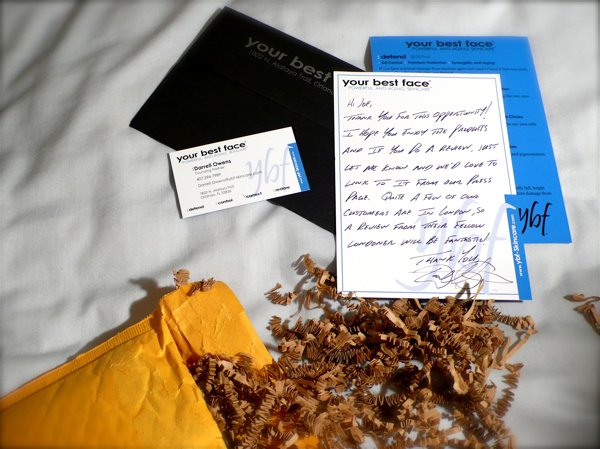 your best face
1802 N. Alafaya Trail, Orlan
your best face
POWERFUL ANTI-AGING SKINCARE
defend
Oil Control Premium Protection Synergistic anti-aging
your best face
POWERFUL ANTI-AGING SKINCARE
Hi Joe,
Thank you for this opportunity!
I hope you enjoy the products
and if you do a review, just
let me know and we'd love to
link to it from our press
page. Quite a few of our
customers are in London, so
a review from their fellow
Londoner will be fantastic!
Thank you,
ybf
www.ybf-skincare.com
ybf
your best face
POWERFUL ANTI-AGING SKINCARE
Darrell Owens
Founding Partner
Darrell.Owens@ybf-skincare.com
1802 N. Alafaya Trail
Orlando, FL 32826
ybf
defend control correct restore